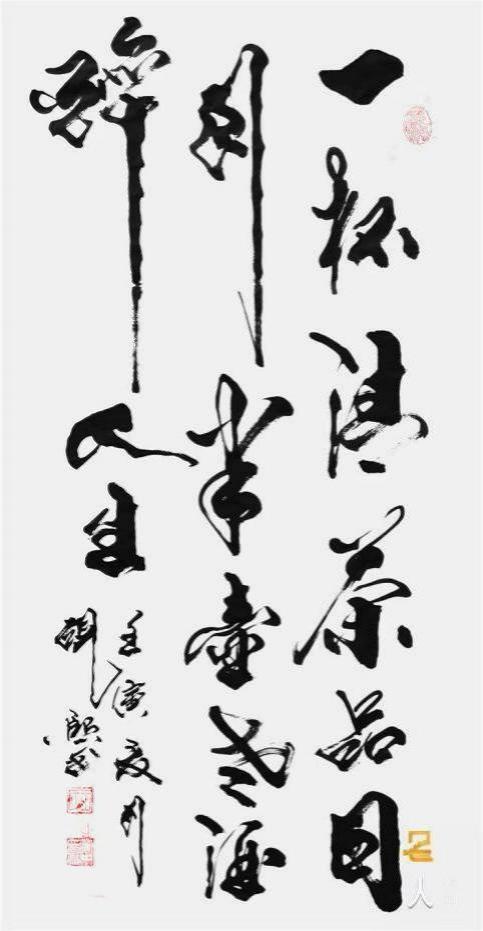 一杯清茶品日
月半壶老酒
醉人生
壬寅夏月
胡